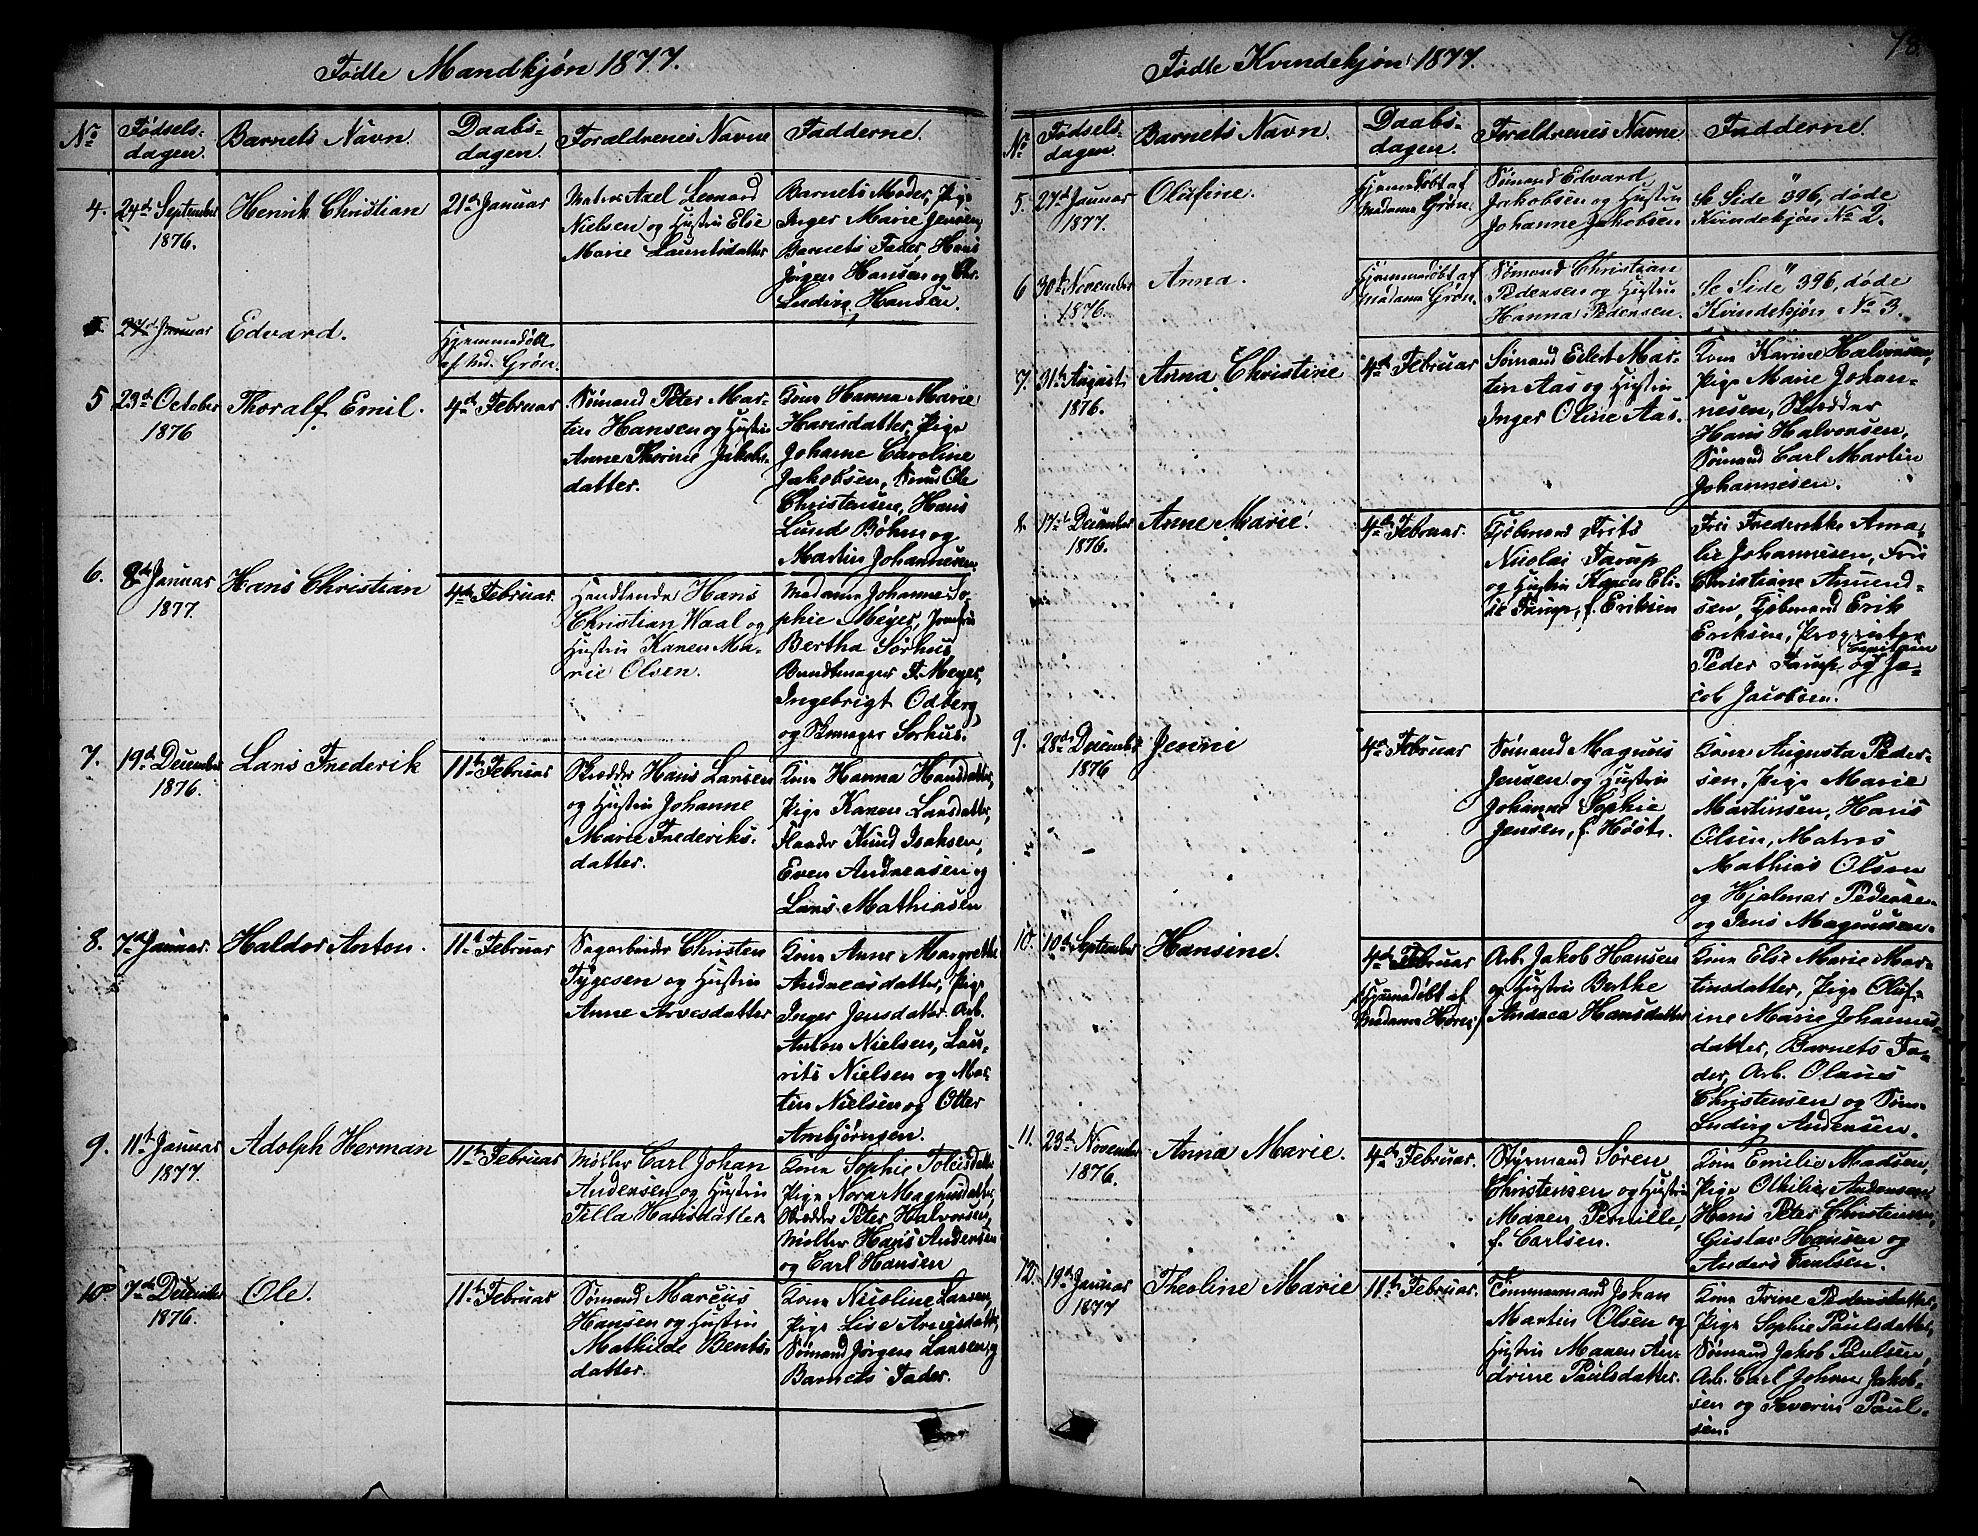 Fødte Mandkjøn 1877.
No
Fødsels-
dagen.
Barnets Navn.
Daabs-
dagen.
Forældrenes Navne
Fadderne.
4.
24d September
1876.
Henrik Christian
21d Januar
Matros Axel Leonard
Nielsen og Hustru Else
Marie Lauritsdatter
Barnets Moder, Pige
Inger Marie Jensen,
Barnets Fader, Hans
Jørgen Hansen og Chr.
Ludvig Hansen.
24d Januar
Edvard.
Hjemmedøbt
af Md. Grøn.
5
23d October
1876
Thoralf Emil.
4de Februar
Sømand Peter Mar-
tin Hansen og Hustru
Anne Thorine Jakobs-
datter.
Kone Hanna Marie
Hansdatter, Pige
Johanne Caroline
Jakobsen, Ole
Christensen, Hans
Lund Bøhm og
Martin Johannesen.
6.
8d Januar
1877.
Hans Christian
4de Februar.
Handlende Hans
Christian Waal og
Hustru Karen Ma-
rie Olsen.
Madame Johanne So-
phie Meyer, Jomfru
Bertha Sørhus,
Bundtmager F. Meyer,
Ingebrigt Odberg,
og Skomager Sørhus.
7.
19d December
1876.
Lars Frederik
11te Februar
Skrædder Hans Larsen
og Hustru Johanne
Marie Frederiks-
datter.
Kone Hanna Hansdatter,
Pige Karen Larsdatter,
Knud Isaksen,
Even Andreasen og
Lars Mathiasen
8.
7d Januar.
Haldor Anton.
11te Februar
Sagarbeider Christen
Tygesen og Hustru
Anne Arvesdatter
Kone Anne Margrethe
Andreasdatter, Pige
Inger Jensdatter. Arb.
Anton Nielsen, Lau-
rits Nielsen og Mar-
tin Nielsen og Otter
Ambjørnsen.
9.
11te Januar
1877.
Adolph Herman
11te Februar
Møller Carl Johan
Andersen og Hustru
Tilla Hansdatter
Kone Sophie
Pige Nora Magnusdatter,
Skrædder Peter Halvorsen,
Møller Hans Andersen
og Carl Hansen
10
7de December
1876.
Ole.
11te Februar
Sømand Marcus
Hansen og Hustru
Mathilde Bents-
datter.
Kone Nicoline Larsen,
Pige Lise Arnesdatter,
Sømand Jørgen Larsen og
Barnets Fader.
Fødte Kvindekjøn 1877.
78
No
Fødsels-
dagen.
Barnets Navn.
Daabs-
dagen.
Forældrenes Navne
Fadderne.
5.
27d Januar
1877.
Olufine.
Hjemmedøbt af
Madame Grøn.
Sømand Edvard
Jakobsen og Hustru
Johanne Jakobsen.
Se Side 396, døde
Kvindekjøn No 2.
6
30te November
1876.
Anna.
Hjemmedøbt af
Madame Grøn.
Sømand Christian
Pedersen og Hustru
Hanna Pedersen.
Se Side 396, døde
Kvindekjøn No 3.
7.
31te August
1876.
Anna Christine
4de Februar
Sømand Eilert Mar-
tin Aas og Hustru
Inger Oline Aas.
Kone Karine Halvorsen,
Pige Marie Johan-
nesen, Skrædder
Hans Halvorsen,
Sømand Carl Martin
Johannesen.
8.
17d December
1876.
Anne Marie.
4de Februar.
Gjøbmand Frits
Nicolai Tarup
og Hustru Karen Eli-
se Tarup, f. Eriksen
Fru Frederikke Ama-
lie Johannesen, Fru
Christiane Amund-
sen, Gjøbmand Erik
Eriksen, Proprietær
Peder Tarup og Capitain Ja-
cob Jacobsen.
9.
28d December
1876
Jenni
4de Februar
Sømand Magnus
Jensen og Hustru
Johanne Sophie
Jensen, f. Høst.
Kone Augusta Peder-
sen, Pige Marie
Martinsen, Hans
Olsen, Matros
Mathias Olsen
og Hjalmar Pedersen
og Jens Magnusen.
10.
10d September
Hansine.
4de Februar
(Hjemmedøbt af
Madame)
Arb. Jakob Hansen
og Hustru Berthe
Andrea Hansdatter
Kone Else Marie Mar-
tinsdatter, Pige Oluf-
ine Marie Johannes-
datter, Barnets Fa-
der, Arb. Olaus
Christensen og Søm.
Ludvig Andersen.
11.
23d November
1876.
Anna Marie.
4de Februar.
Styrmand Søren
Christensen og Hustru
Maren Pernille,
f. Carlsen.
Kone Emilie Madsen,
Pige Othilie Andersen
Hans Peter Christensen,
Gustav Hansen og
Anders Paulsen.
12.
19d Januar
1877
Theoline Marie
11te Februar.
Tømmermand Johan
Martin Olsen og
Hustru Maren An-
drine Paulsdatter.
Kone Trine Pedersdatter,
Pige Sophie Paulsdatter,
Sømand Jakob Paulsen,
Arb. Carl Johan Jakob-
sen og Severin Paul-
sen.